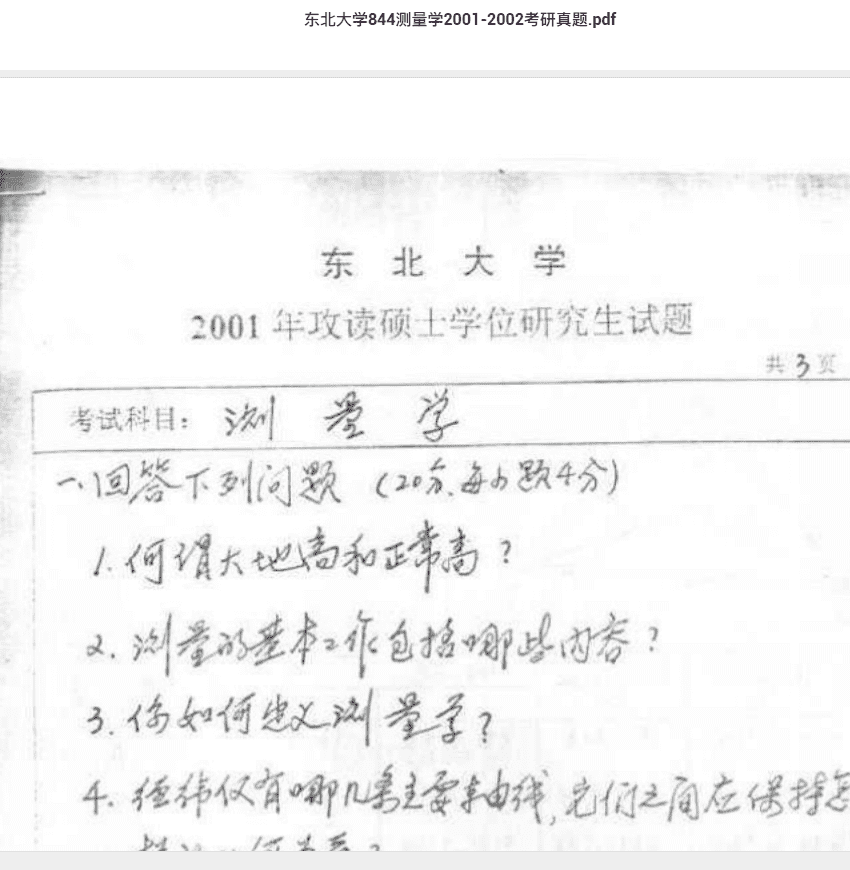 东北大学844测量学2001-2002考研真题.pdf
东 北 大 学
2001 年攻读硕士学位研究生试题
共 3 页
考试科目: 测 量 学
一、回答下列问题 (20分、每小题4分)
1. 何谓大地高和正常高?
2. 测量的基本工作包括哪些内容?
3. 你如何定义测量学?
4. 经纬仪有哪几条主要轴线,它们之间应保持怎